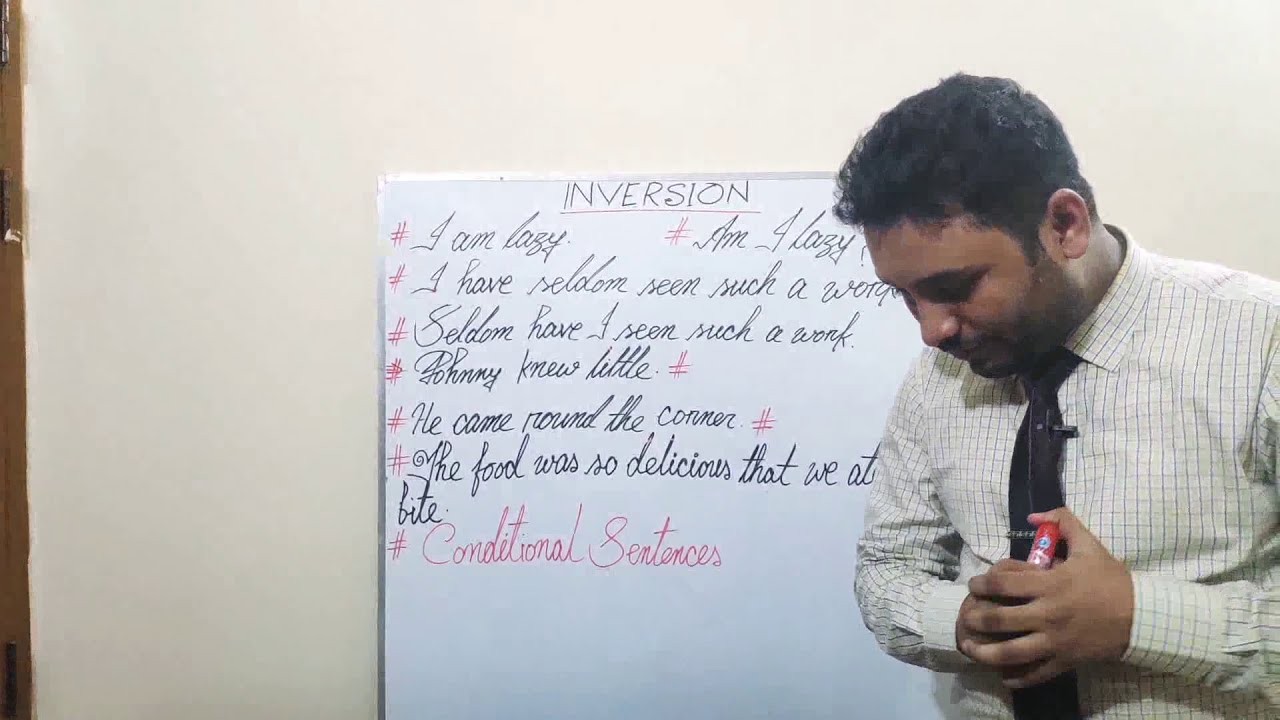 INVERSION
# I am lazy. # Am I lazy?
# I have seldom seen such a work
# Seldom have I seen such a work.
# Johnny knew little. #
# He came round the corner. #
# The food was so delicious that we at
bite.
# Conditional Sentences